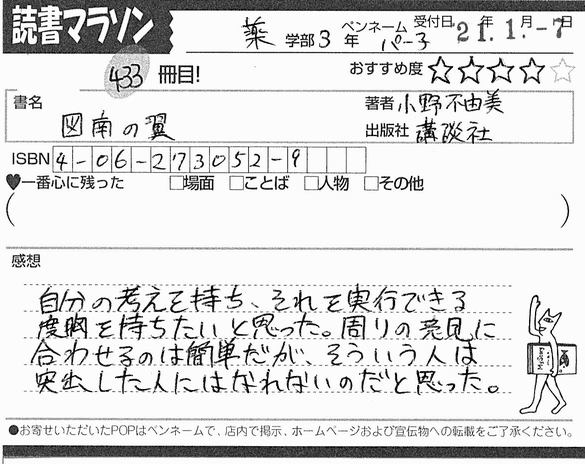 読書マラソン
薬 学部 3 年 ペンネーム パー子 受付日 21年 1月 -7日
433 冊目! おすすめ度 ☆☆☆☆☆
書名 図南の翼
著者 小野不由美
出版社 講談社
ISBN 4-06-273052-9
♥一番心に残った □場面 □ことば □人物 □その他
( )
感想
自分の考えを持ち、それを実行できる
度胸を持ちたいと思った。周りの意見に
合わせるのは簡単だが、そういう人は
突出した人にはなれないのだと思った。
●お寄せいただいたPOPはペンネームで、店内で掲示、ホームページおよび宣伝物への転載をご了承ください。